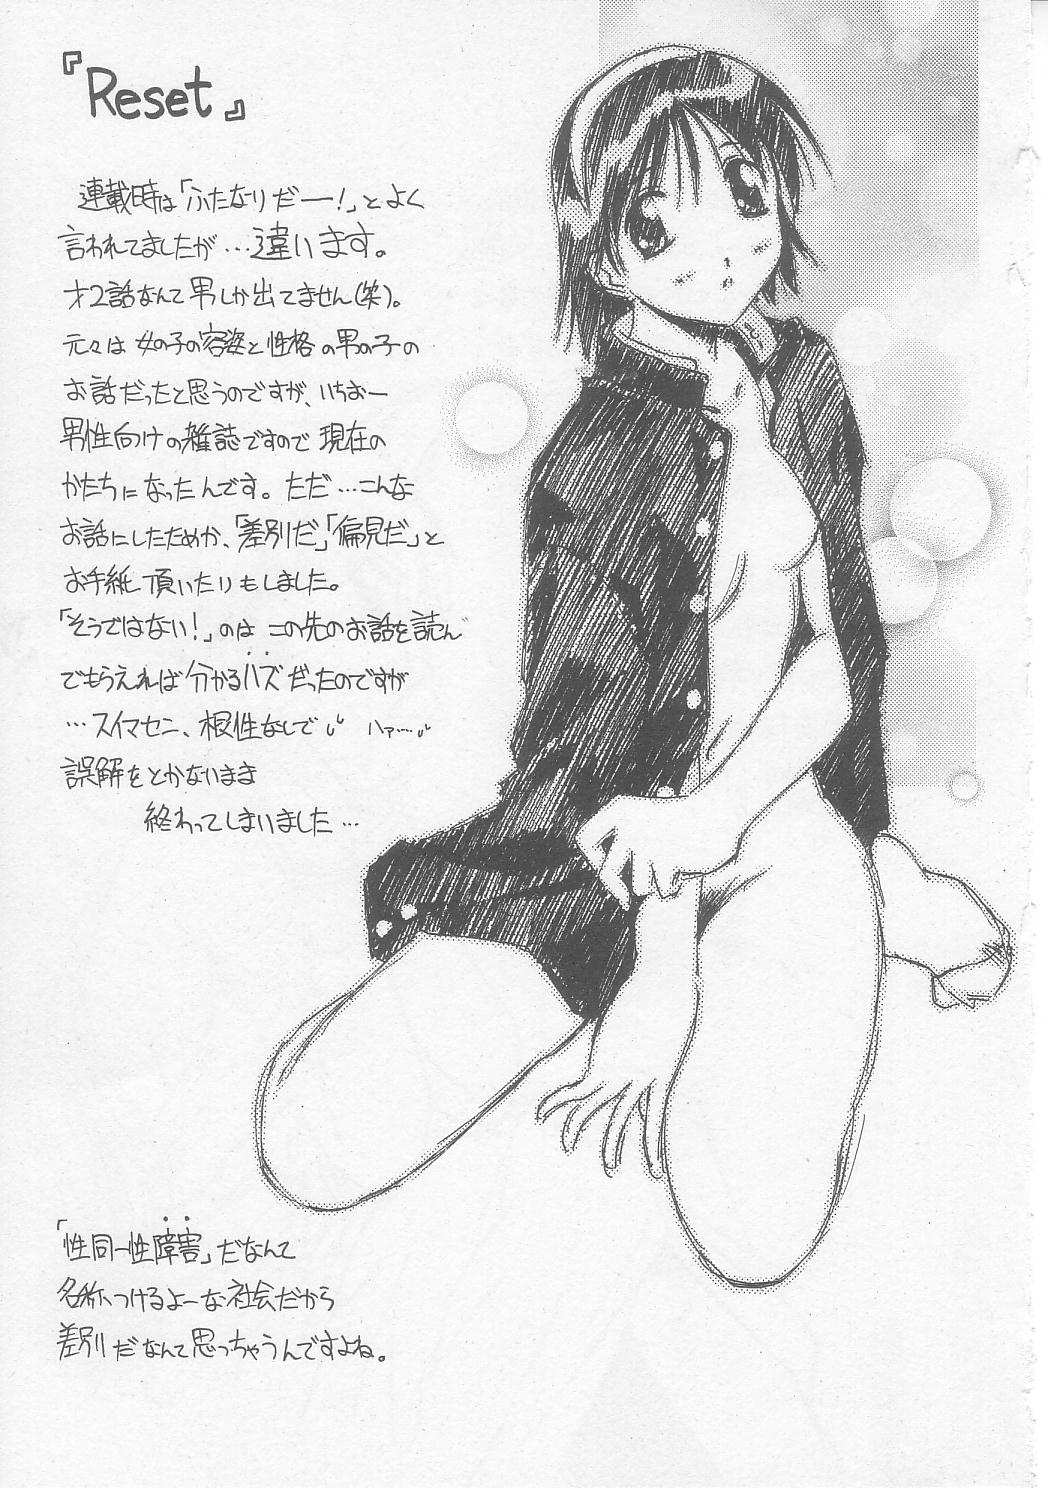 『Reset』
連載時は「ふたなりだー！」とよく
言われてましたが…違います。
才2話なんて男しか出てません(笑)。
元々は女の子の容姿と性格の男の子の
お話だったと思うのですが、いちおー
男性向けの雑誌ですので現在の
かたちになったんです。ただ…こんな
お話にしたためか、「差別だ」「偏見だ」と
お手紙頂いたりもしました。
「そうではない！」のはこの先のお話を読ん
でもらえれば分かるハズだったのですが
…スイマセン、根性なしで ハァ……
誤解をとかないまま
終わってしまいました…
「性同一性障害」だなんて
名称つけるよーな社会だから
差別だなんて思っちゃうんですよね。